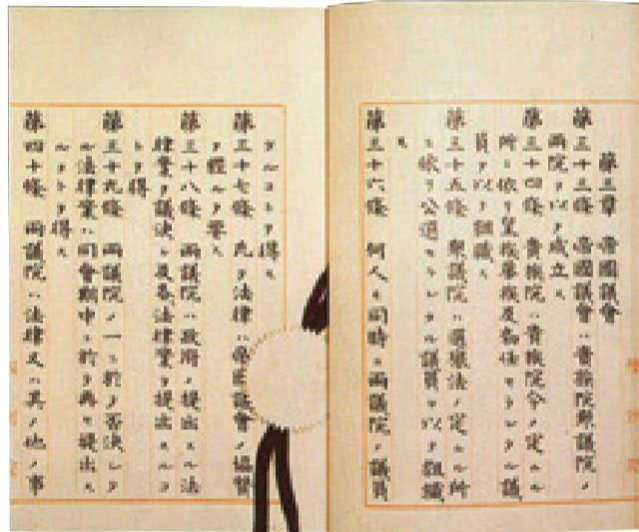 第三章 帝國議會
第三十三條 帝國議會ハ貴族院衆議院ノ
兩院ヲ以テ成立ス
第三十四條 貴族院ハ貴族院令ノ定ムル
所ニ依リ皇族華族及勅任セラレタル議
員ヲ以テ組織ス
第三十五條 衆議院ハ選擧法ノ定ムル所
ニ依リ公選セラレタル議員ヲ以テ組織
ス
第三十六條 何人モ同時ニ兩議院ノ議員
タルコトヲ得ス
第三十七條 凡テ法律ハ帝國議會ノ協贊
ヲ經ルヲ要ス
第三十八條 兩議院ハ政府ノ提出スル法
律案ヲ議決シ及各法律案ヲ提出スルコ
トヲ得
第三十九條 兩議院ノ一ニ於テ否決シタ
ル法律案ハ同會期中ニ於テ再ヒ提出ス
ルコトヲ得ス
第四十條 兩議院ハ法律又ハ其ノ他ノ事